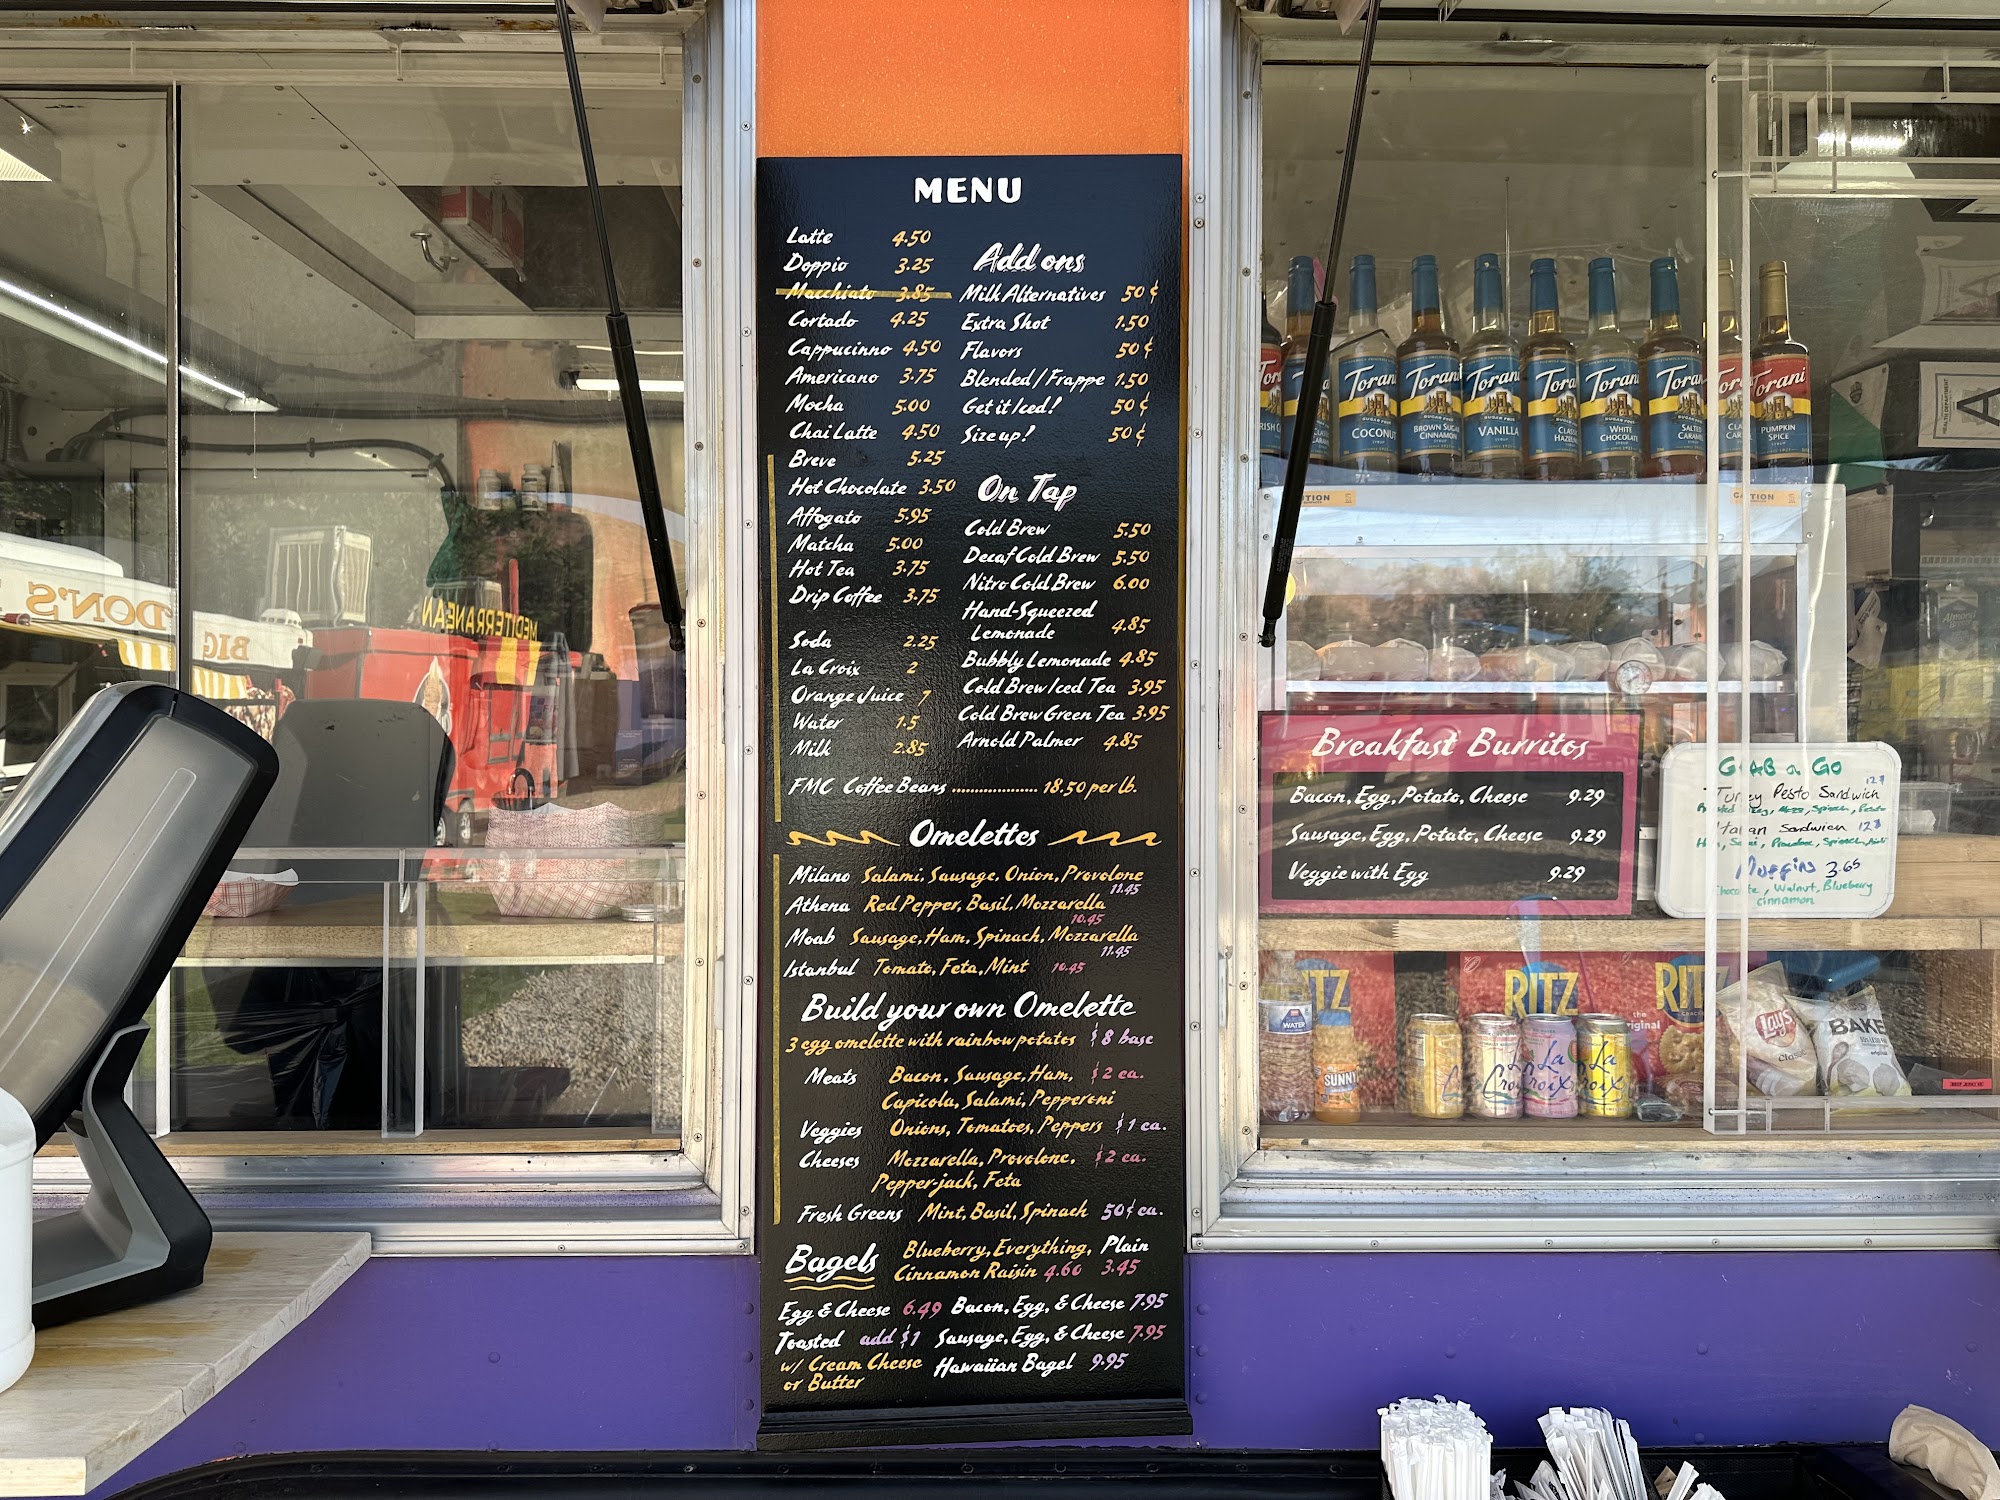 MENU
Latte 4.50
Doppio 3.25
Macchiato 3.85
Cortado 4.25
Cappucinno 4.50
Americano 3.75
Mocha 5.00
Chai Latte 4.50
Breve 5.25
Hot Chocolate 3.50
Affogato 5.95
Matcha 5.00
Hot Tea 3.75
Drip Coffee 3.75
Soda 2.25
La Croix 2
Orange Juice 7
Water 1.5
Milk 2.85
Add ons
Milk Alternatives 50¢
Extra Shot 1.50
Flavors 50¢
Blended/Frappe 1.50
Get it Iced! 50¢
Size up! 50¢
On Tap
Cold Brew 5.50
Decaf Cold Brew 5.50
Nitro Cold Brew 6.00
Hand-Squeezed
Lemonade 4.85
Bubbly Lemonade 4.85
Cold Brew Iced Tea 3.95
Cold Brew Green Tea 3.95
Arnold Palmer 4.85
FMC Coffee Beans .................. 18.50 per lb.
Omelettes
Milano Salami, Sausage, Onion, Provolone
11.45
Athena Red Pepper, Basil, Mozzarella
10.45
Moab Sausage, Ham, Spinach, Mozzarella
11.45
Istanbul Tomato, Feta, Mint 10.45
Build your own Omelette
3 egg omelette with rainbow potatoes $8 base
Meats Bacon, Sausage, Ham, $2 ea.
Capicola, Salami, Pepperoni
Veggies Onions, Tomatoes, Peppers $1 ea.
Cheeses Mozzarella, Provolone, $2 ea.
Pepper-jack, Feta
Fresh Greens Mint, Basil, Spinach 50¢ ea.
Bagels Blueberry, Everything, Plain
Cinnamon Raisin 4.60 3.45
Egg & Cheese 6.49 Bacon, Egg, & Cheese 7.95
Toasted add $1 Sausage, Egg, & Cheese 7.95
w/ Cream Cheese Hawaiian Bagel 9.95
or Butter
Breakfast Burritos
Bacon, Egg, Potato, Cheese 9.29
Sausage, Egg, Potato, Cheese 9.29
Veggie with Egg 9.29
GRAB n GO
Turkey Pesto Sandwich
Italian Sandwich
Muffins 3.65
Chocolate, Walnut, Blueberry
cinnamon
Torani
COCONUT
Torani
BROWN SUGAR
CINNAMON
Torani
VANILLA
Torani
Torani
WHITE
CHOCOLATE
Torani
Torani
PUMPKIN
SPICE
CAUTION
RITZ
RITZ
RITZ
WATER
SUNNY
La Croix
La Croix
Lay's
Classic
BAKED
DON'S
BIG
MEDITERRANEAN